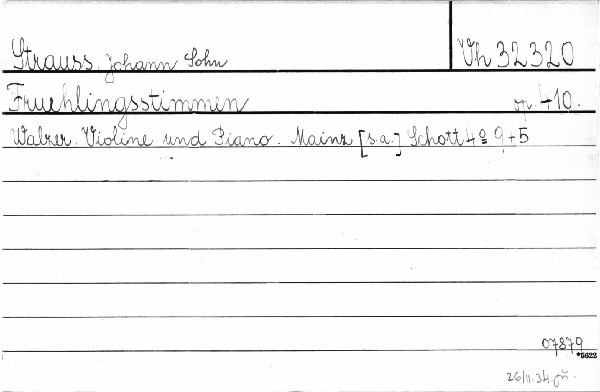 Strauss, Johann Sohn
Vh 32320
Fruehlingsstimmen op. 410.
Walzer. Violine und Piano. Mainz [s.a.] Schott 4º 9+5
07879
*5622
26/11.34.